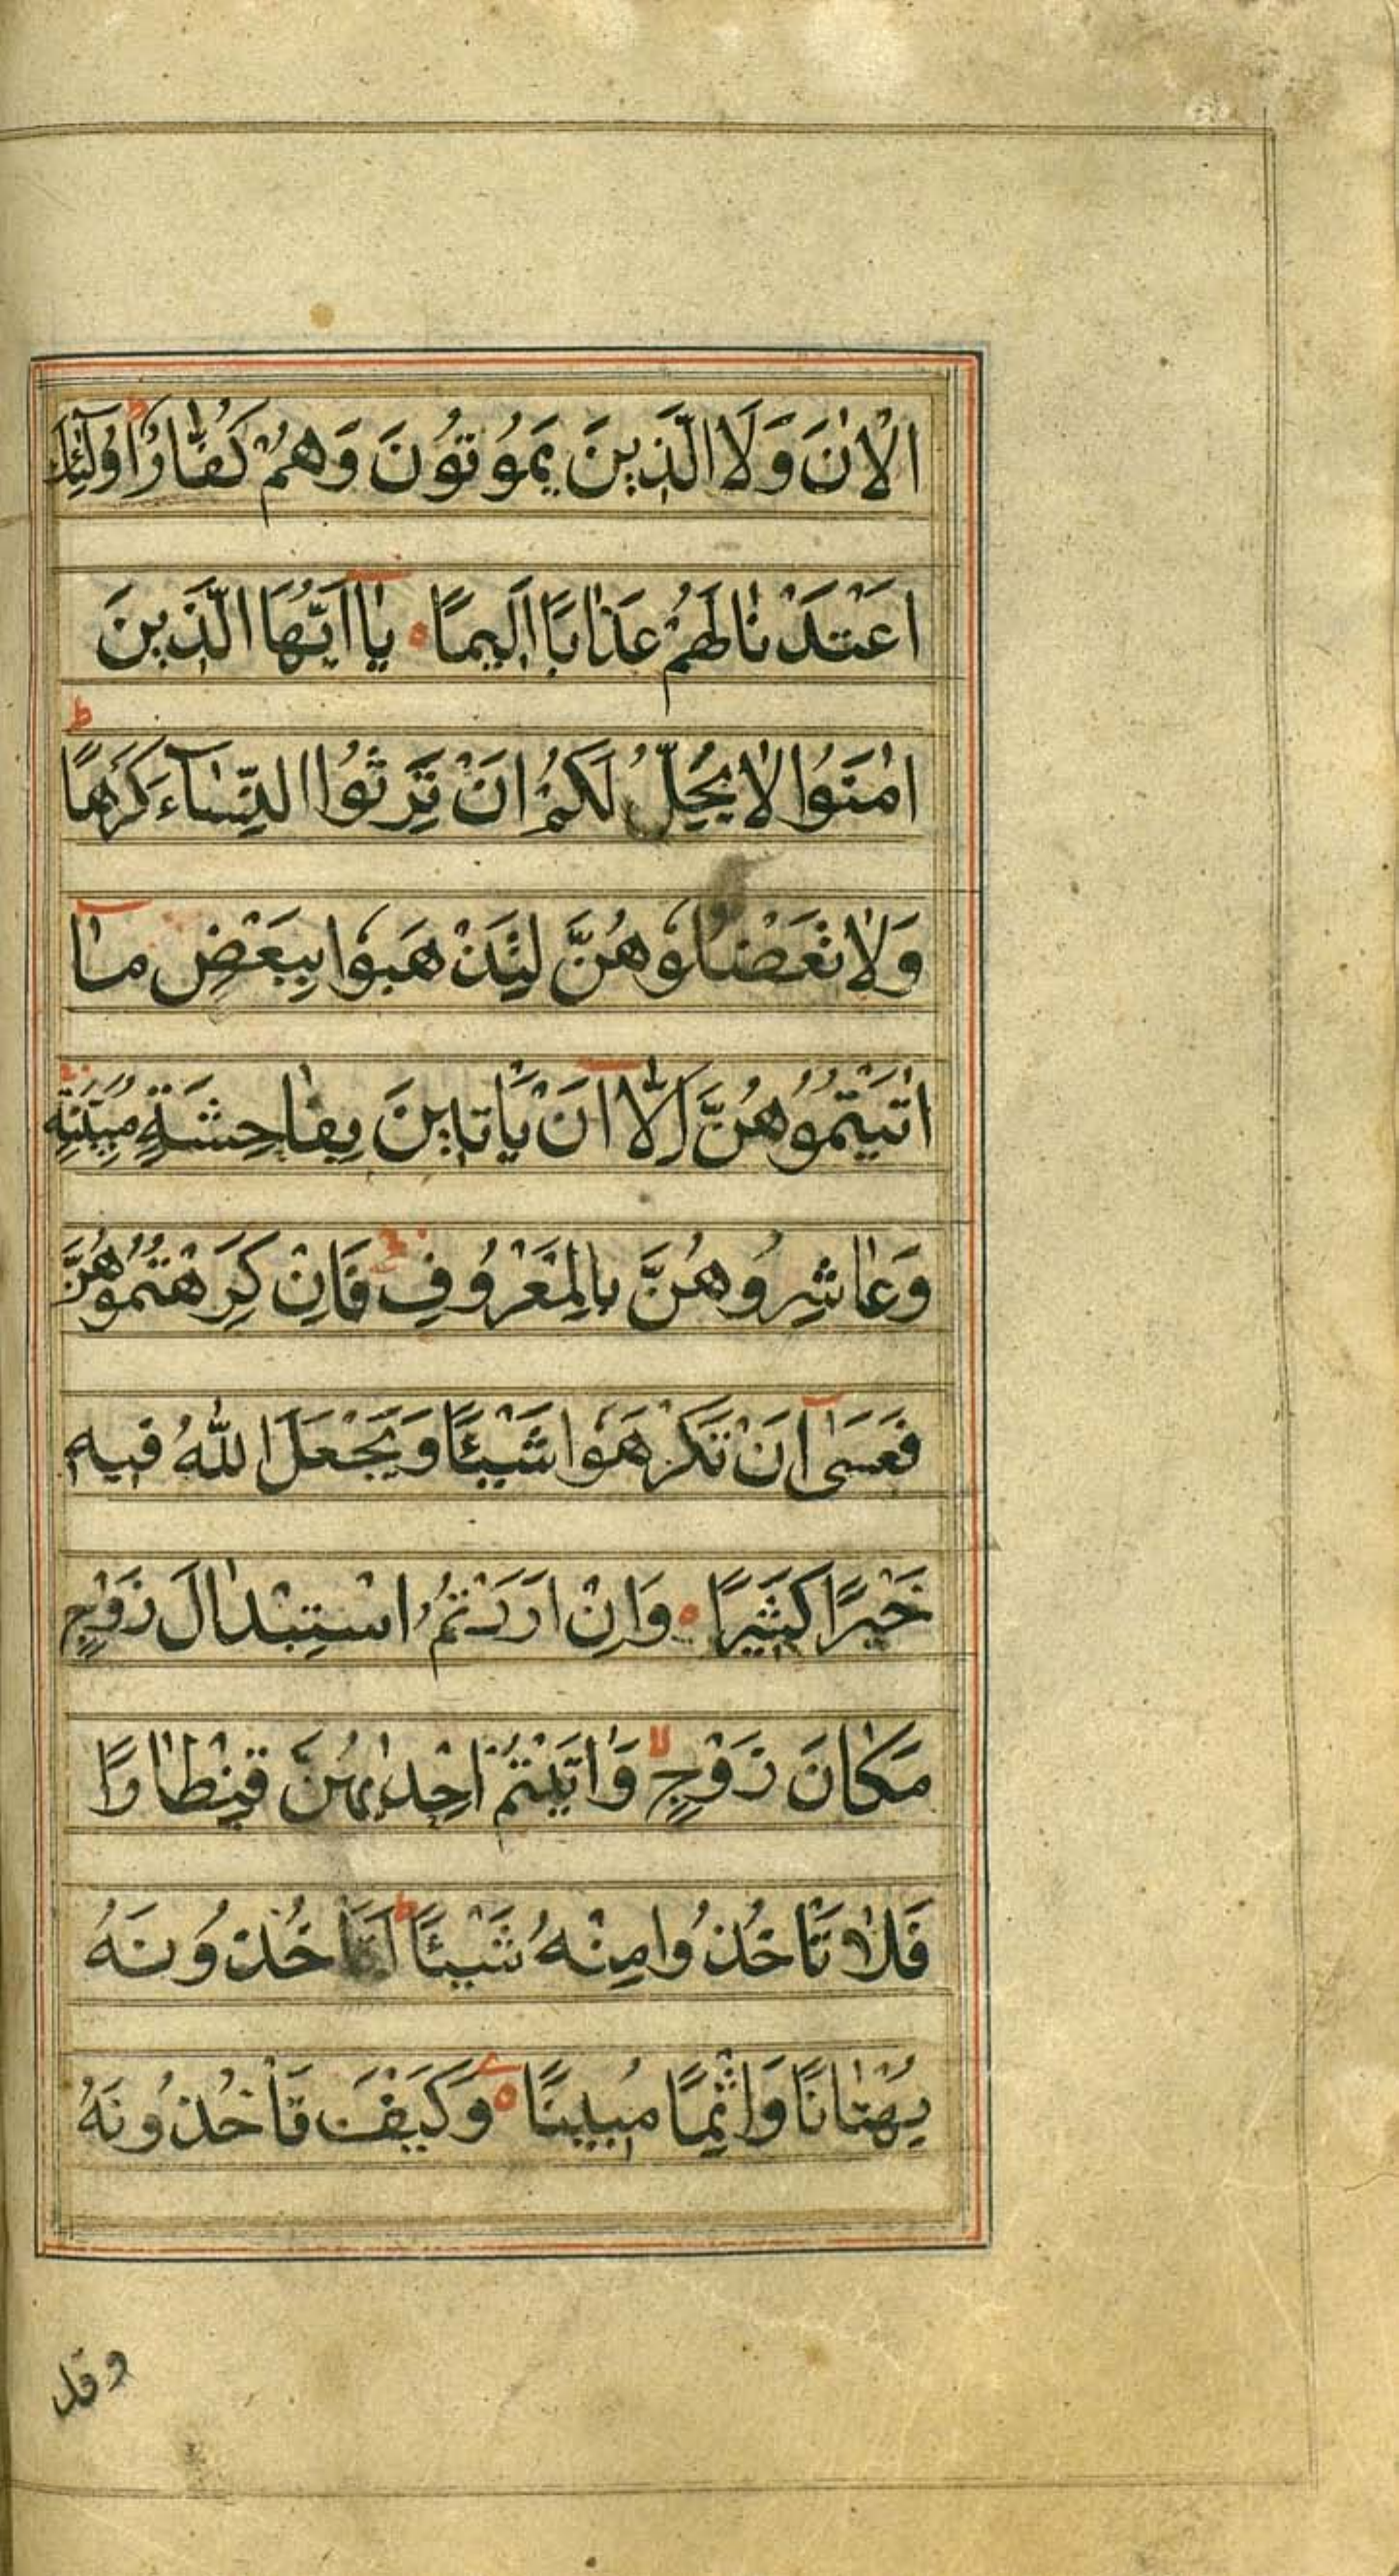 الْاٰنَ وَلَا الَّذِينَ يَمُوتُونَ وَهُمْ كُفَّارٌ ط اُولٰٓئِكَ
اَعْتَدْنٰا لَهُمْ عَذٰابًا اَلِيمًا ه يٰٓا اَيُّهَا الَّذِينَ
اٰمَنُوا لٰا يَحِلُّ لَكُمْ اَنْ تَرِثُوا النِّسٰٓاءَ كَرْهًا ط
وَلٰا تَعْضُلُوهُنَّ لِتَذْهَبُوا بِبَعْضِ مٰٓا
اٰتَيْتُمُوهُنَّ اِلّٰٓا اَنْ يَأْتِينَ بِفٰاحِشَةٍ مُبَيِّنَةٍ ج
وَعٰاشِرُوهُنَّ بِالْمَعْرُوفِ ج فَاِنْ كَرِهْتُمُوهُنَّ
فَعَسٰىٓ اَنْ تَكْرَهُوا شَيْئًا وَيَجْعَلَ اللّٰهُ فِيهِ
خَيْرًا كَثِيرًا ه وَاِنْ اَرَدْتُمُ اسْتِبْدٰالَ زَوْجٍ
مَكٰانَ زَوْجٍ لا وَاٰتَيْتُمْ اِحْدٰيهُنَّ قِنْطٰارًا
فَلٰا تَأْخُذُوا مِنْهُ شَيْئًا ط اَتَأْخُذُونَهُ
بُهْتٰانًا وَاِثْمًا مُبِينًا ه وَكَيْفَ تَأْخُذُونَهُ
وقد